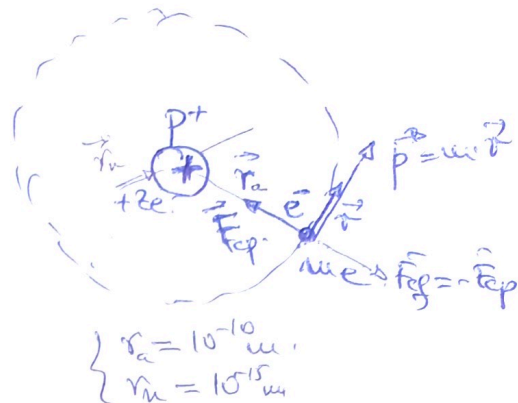 P⁺
r⃗ₙ
+Ze
r⃗ₐ
F⃗cp.
e⁻
v⃗
p⃗ = m v⃗
me
F⃗cf = -F⃗cp
{ rₐ = 10⁻¹⁰ m.
rₙ = 10⁻¹⁵ m